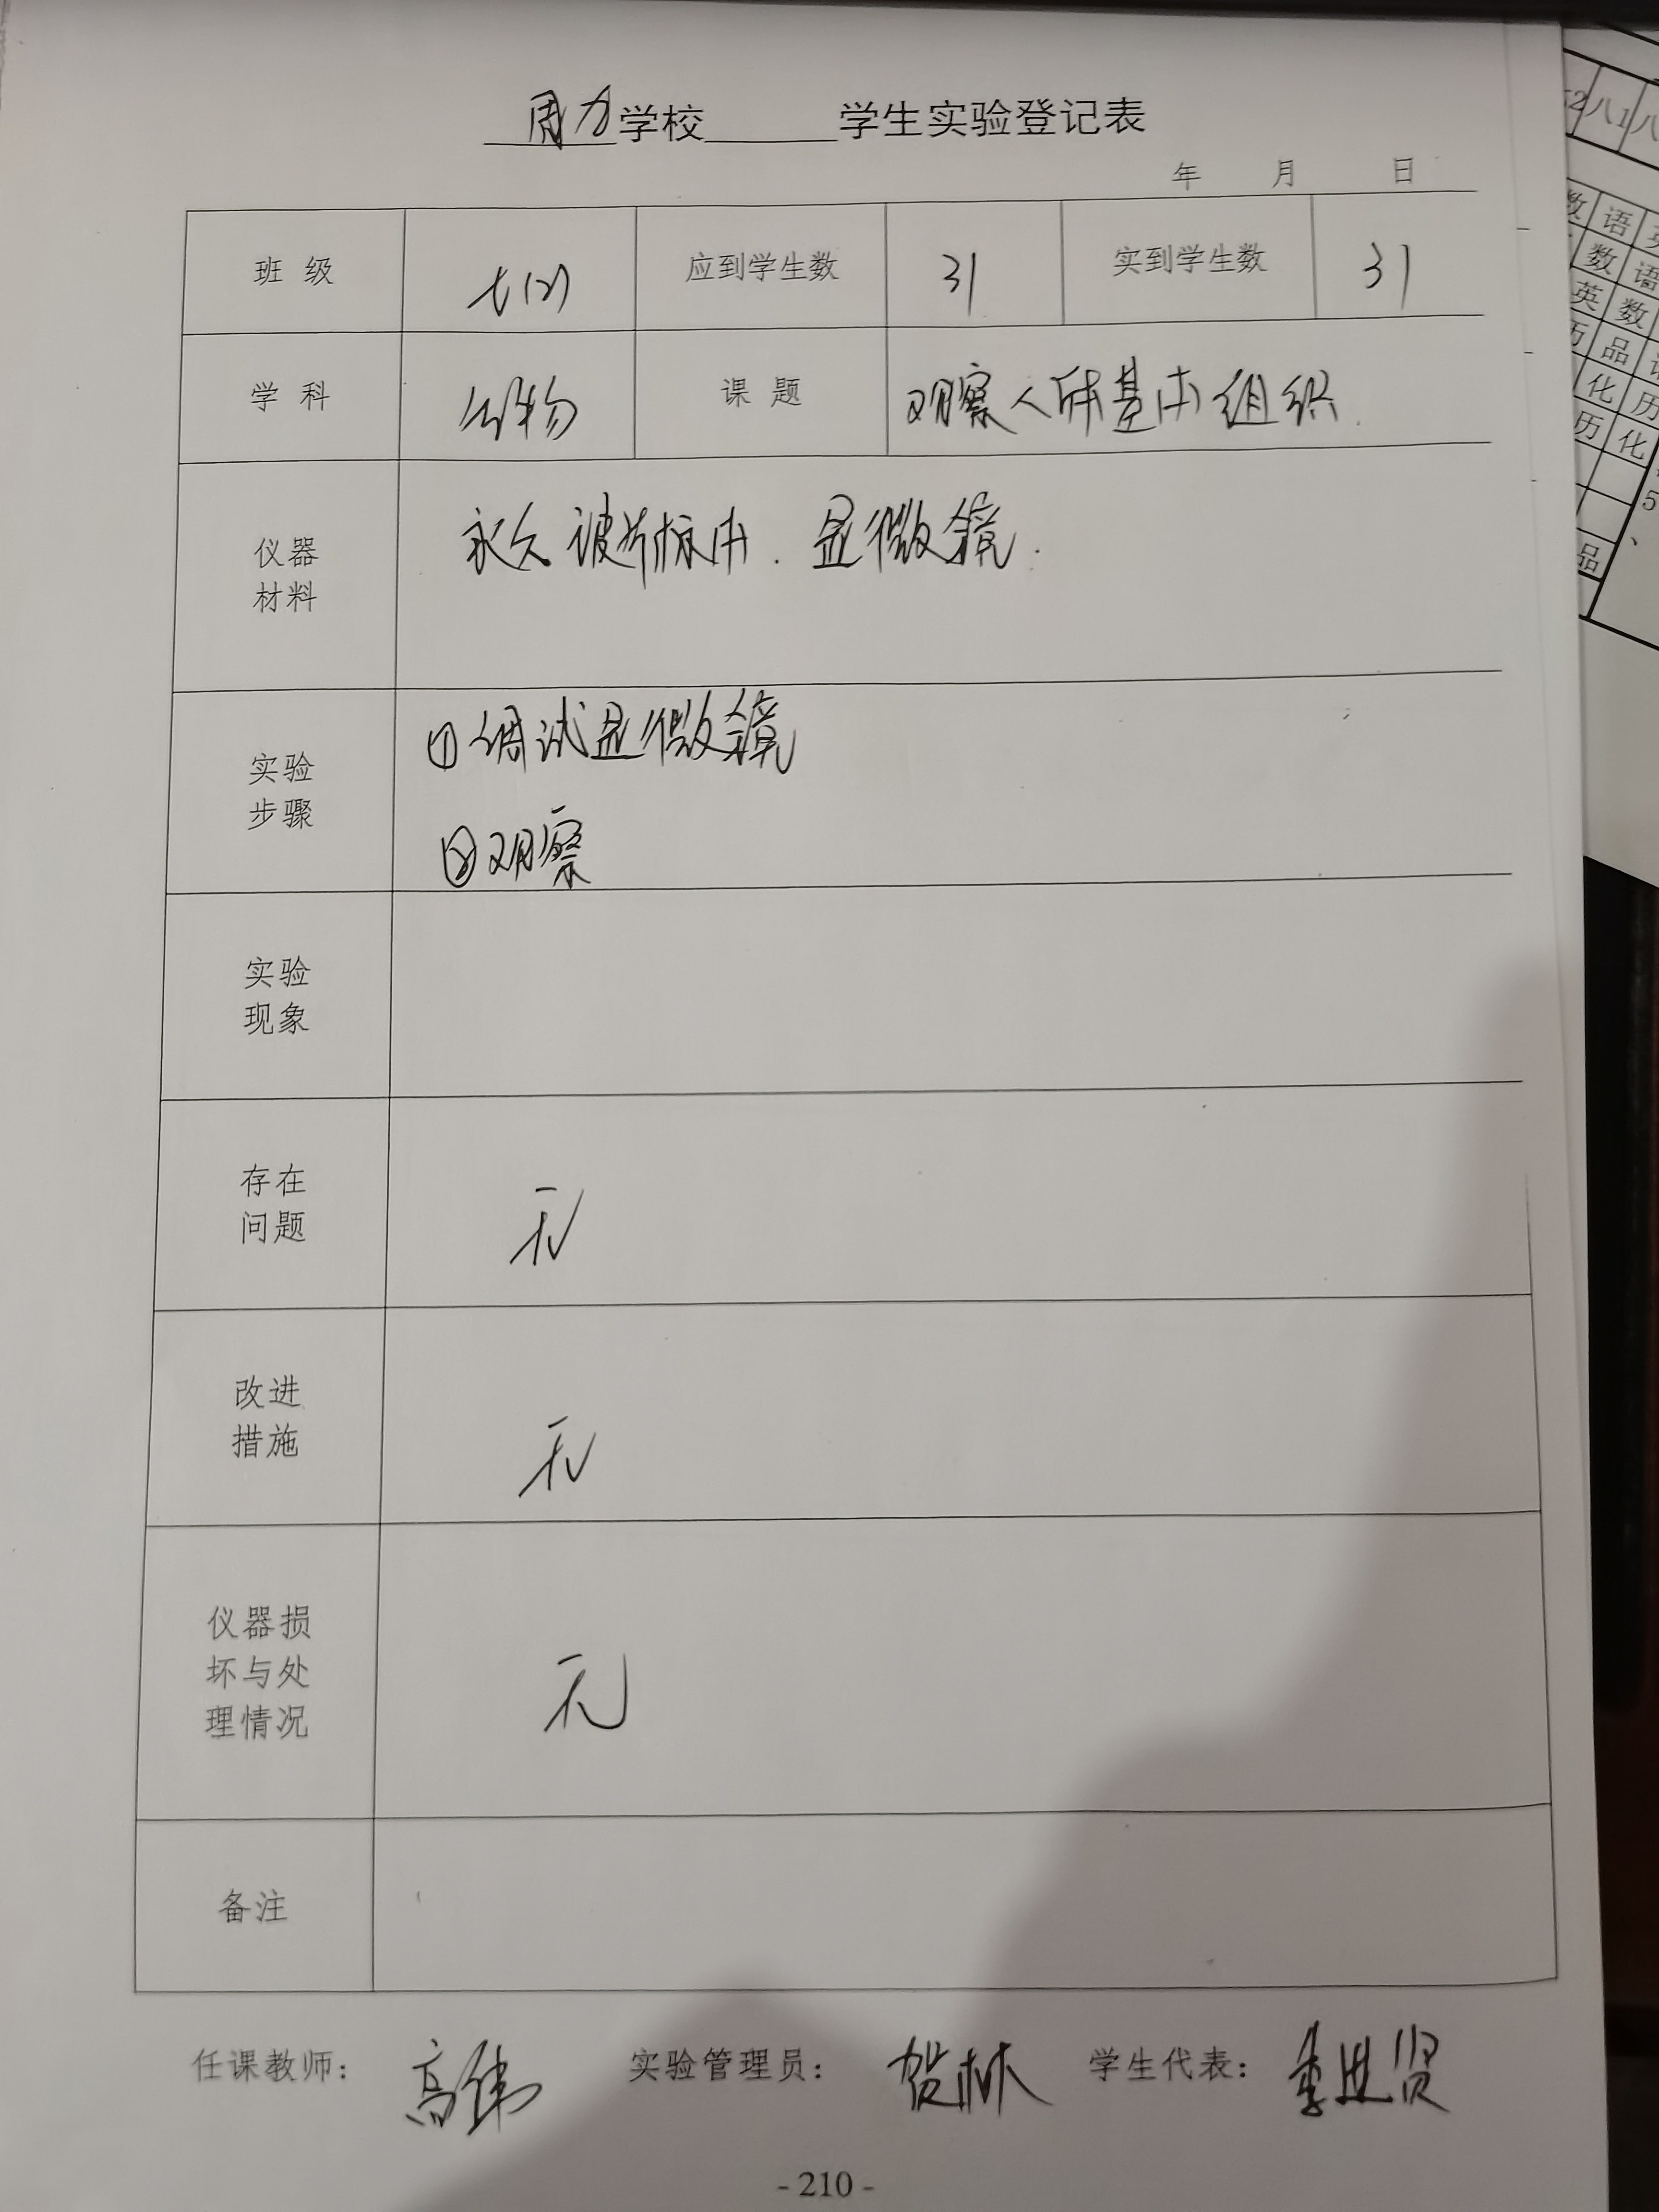 周力学校______学生实验登记表
年 月 日
班级 七(2) 应到学生数 31 实到学生数 31
学科 生物 课题 观察人体基本组织.
仪器
材料
永久玻片标本. 显微镜.
实验
步骤
①调试显微镜
②观察
实验
现象
存在
问题
无
改进
措施
无
仪器损
坏与处
理情况
无
备注
任课教师: 高伟 实验管理员: 贺林 学生代表: 季进贤
- 210 -
八1
数 语
数 语
英 数
历 品
化 历
历 化
5、
品